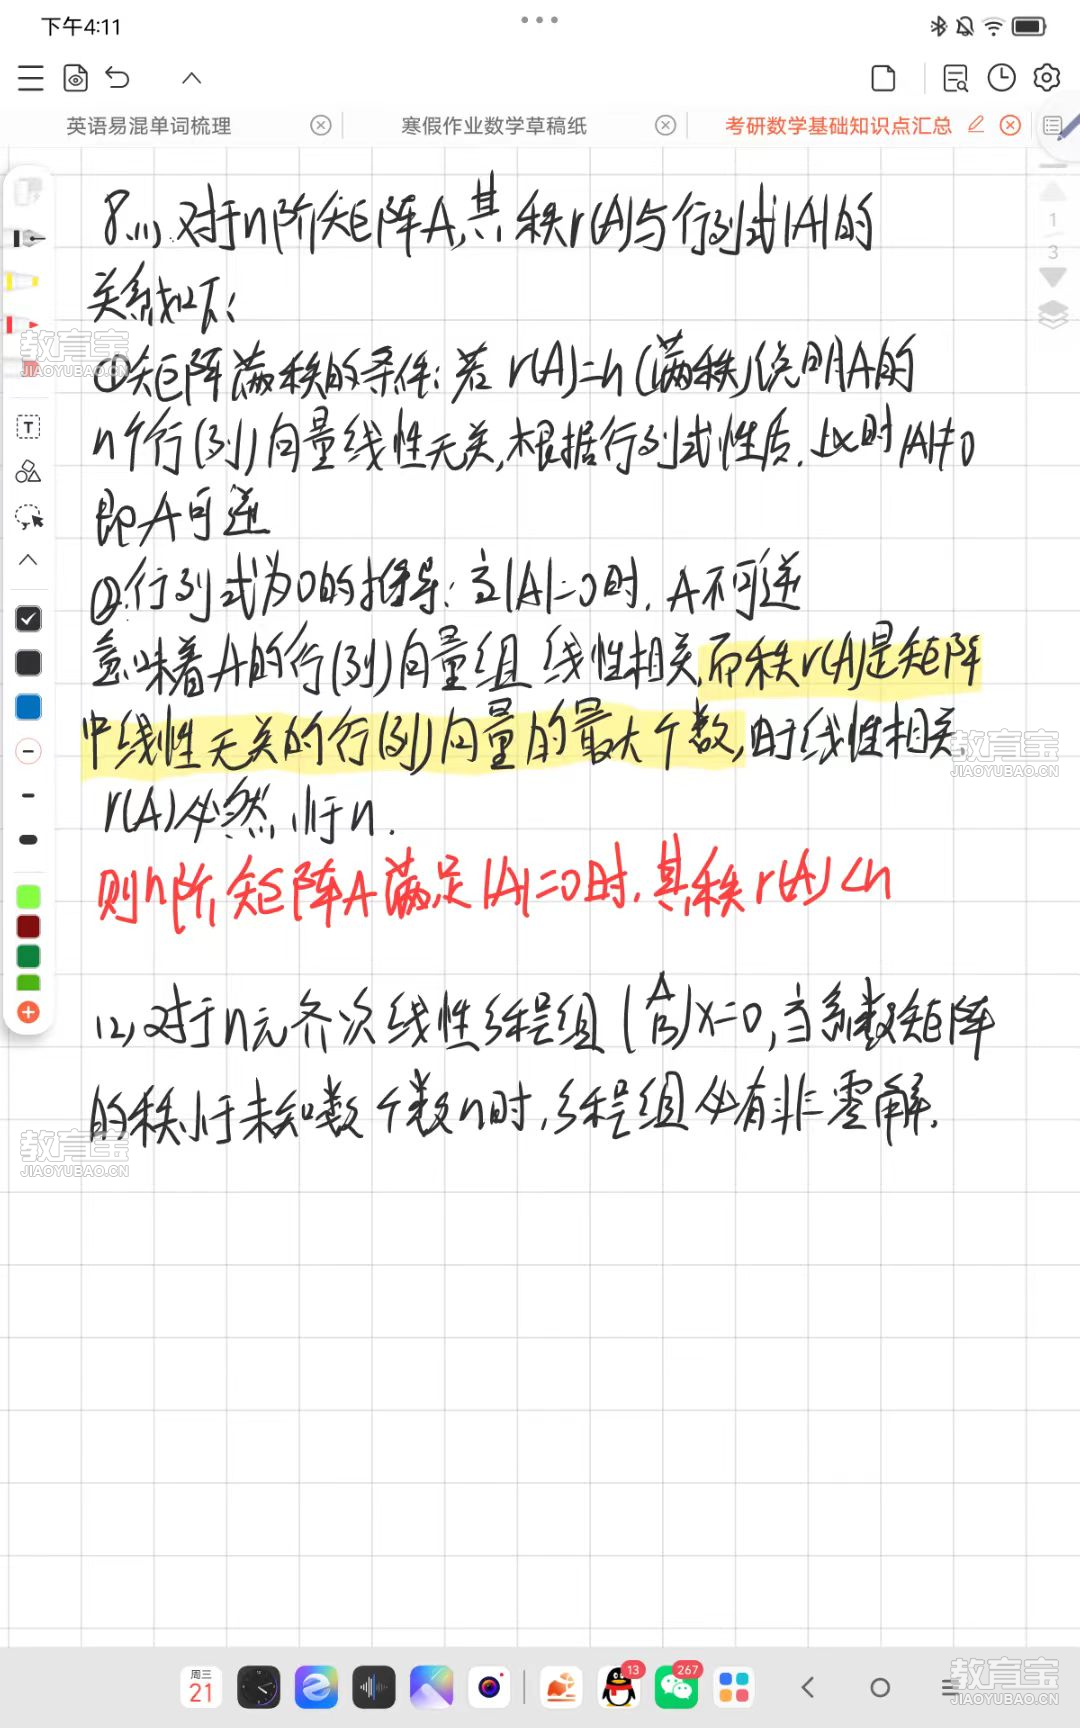 下午4:11
英语易混单词梳理
寒假作业数学草稿纸
考研数学基础知识点汇总
8.(1).对于n阶矩阵A,其秩r(A)与行列式|A|的
关系如下:
①矩阵满秩的条件:若 r(A)=n(满秩)说明A的
n个行(列)向量线性无关,根据行列式性质.此时|A|≠0
即A可逆
②.行列式为0的推导:当|A|=0时,A不可逆
意味着A的行(列)向量组线性相关,而秩r(A)是矩阵
中线性无关的行(列)向量的最大个数,由于线性相关,
r(A)必然小于n.
则n阶矩阵A满足|A|=0时,其秩r(A)<n
(2)对于n元齐次线性方程组(A B)x=0,当系数矩阵
的秩小于未知数个数n时,方程组必有非零解.
1
3
T
教育宝
JIAOYUBAO.CN
教育宝
JIAOYUBAO.CN
教育宝
JIAOYUBAO.CN
周三
21
13
267
教育宝
JIAOYUBAO.CN